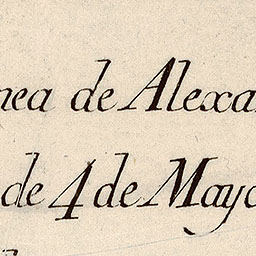 nea de Alexa
de 4 de Mayo